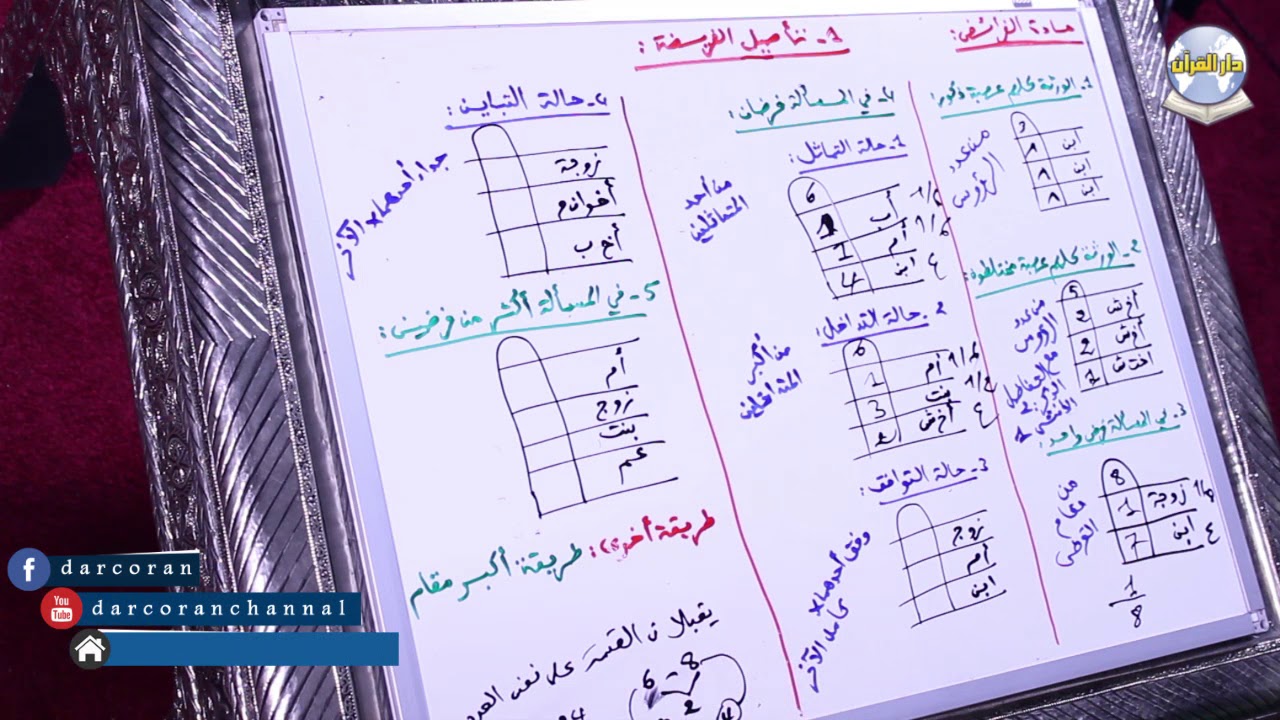 دار القرآن
مادة الفرائض:
1- تأصيل الفريضة:
1- الورثة كلهم عصبة ذكور:
3
ابن 1
ابن 1
ابن 1
من عدد
الرؤوس
2- الورثة كلهم عصبة مختلطون:
5
أخ ش 2
أخ ش 2
أخت ش 1
من عدد
الرؤوس
مع التفاضل
الذكر 2
الأنثى 1
3- في المسألة فرض واحد:
8
1/8 زوجة 1
ع ابن 7
من
مقام
الفرض
1
8
4- في المسألة فرضان:
1- حالة التماثل:
6
1/6 أب 1
1/6 أم 1
ع ابن 4
من أحد
المتماثلين
2- حالة التداخل:
6
1/6 أم 1
1/2 بنت 3
ع أخ ش 2
من أكبر
المتداخلين
3- حالة التوافق:
زوج
أم
ابن
وفق أحدهما x
كامل الآخر
4- حالة التباين:
زوجة
أخوان م
أخ ب
جداء أحدهما x الآخر
5- في المسألة أكثر من فرضين:
أم
زوج
بنت
عم
طريقة أخرى: طريقة أكبر مقام
يقبلان القسمة على نفس العدد
6 8
2
4
darcoran
You
Tube
darcoranchannal